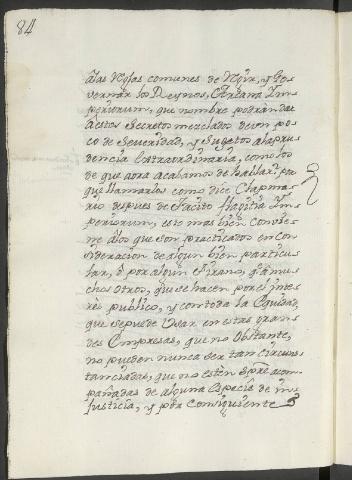 84
alas Reglas comunes de Regir, y Go-
vernar los Reynos, Arcana Im-
periorum, que nombre podran dar
aestos Secretos mezclados de un po-
co de Severidad, y Sugetos ala pru-
dencia extraordinaria, como los
de que aora acabamos de hablar? por
que llamarlos como dice Clapma-
rio despues de Tacito flagitia Im-
periorum, esto mas bien convie-
ne alos que son practicados en con-
sideracion de algun bien particu-
lar, ò por algun Tirano, q.e a mu-
chos otros, que se hacen por el inte-
res publico, y con toda la Equidad,
que se puede Usar en estas gran-
des Empresas, que no obstante,
no pueden nunca ser tan circuns-
tanciadas, que no estèn spre acom-
pañadas de alguna especie de in-
justicia, y por consiguiente